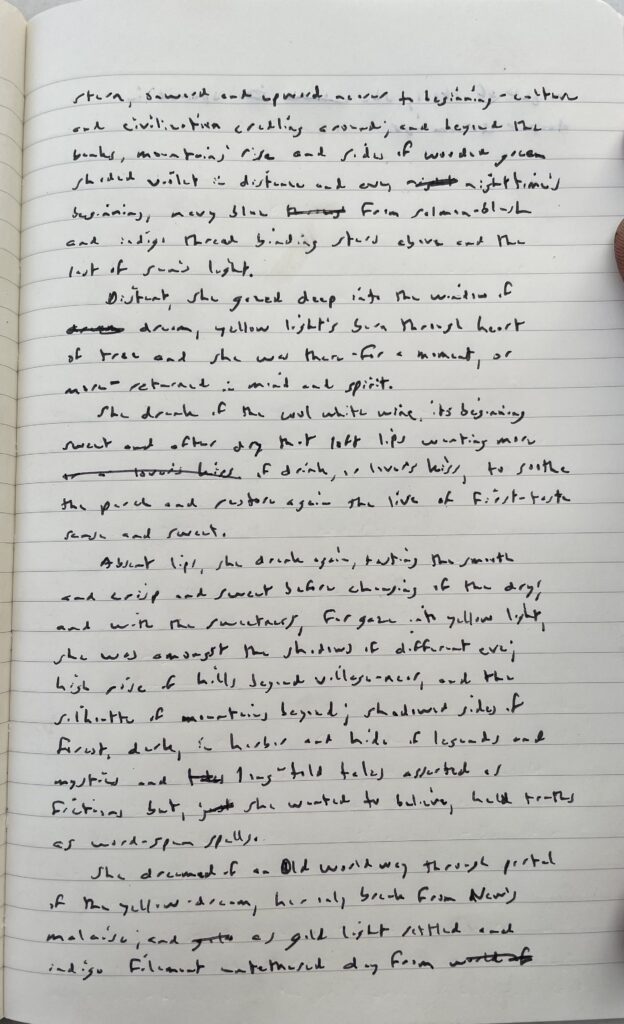 stern, onward and upward nearer to beginning-culture
and civilization cradling around; and beyond the
banks, mountains' rise and sides of wooded green
shaded violet in distance and every night nighttime's
beginning, navy blue from salmon-blush
and indigo thread binding stars above and the
last of sun's light.
Distant, she gazed deep into the window of
dream dream, yellow light's burn through heart
of tree and she was there-for a moment, or
more-returned in mind and spirit.
She drank of the cool white wine, its beginning
sweet and after dry that left lips wanting more
or a lover's kiss of drink, or lover's kiss, to soothe
the parch and restore again the live of first-taste
sense and sweet.
Absent lips, she drank again, tasting the smooth
and crisp and sweet before changing of the dry;
and with the sweetness, for gaze into yellow light,
she was amongst the shadows of different eve;
high rise of hills beyond village-near, and the
silhoutte of mountains beyond; shadowed sides of
forest, dark, in harbor and hide of legends and
mystries and tales long-told tales asserted as
fictions but, just she wanted to believe, held truths
as word-spun spells.
She dreamed of an Old World way through portal
of the yellow-dream, her only break from New's
malaise; and gold as gold light settled and
indigo filament untethered day from world of